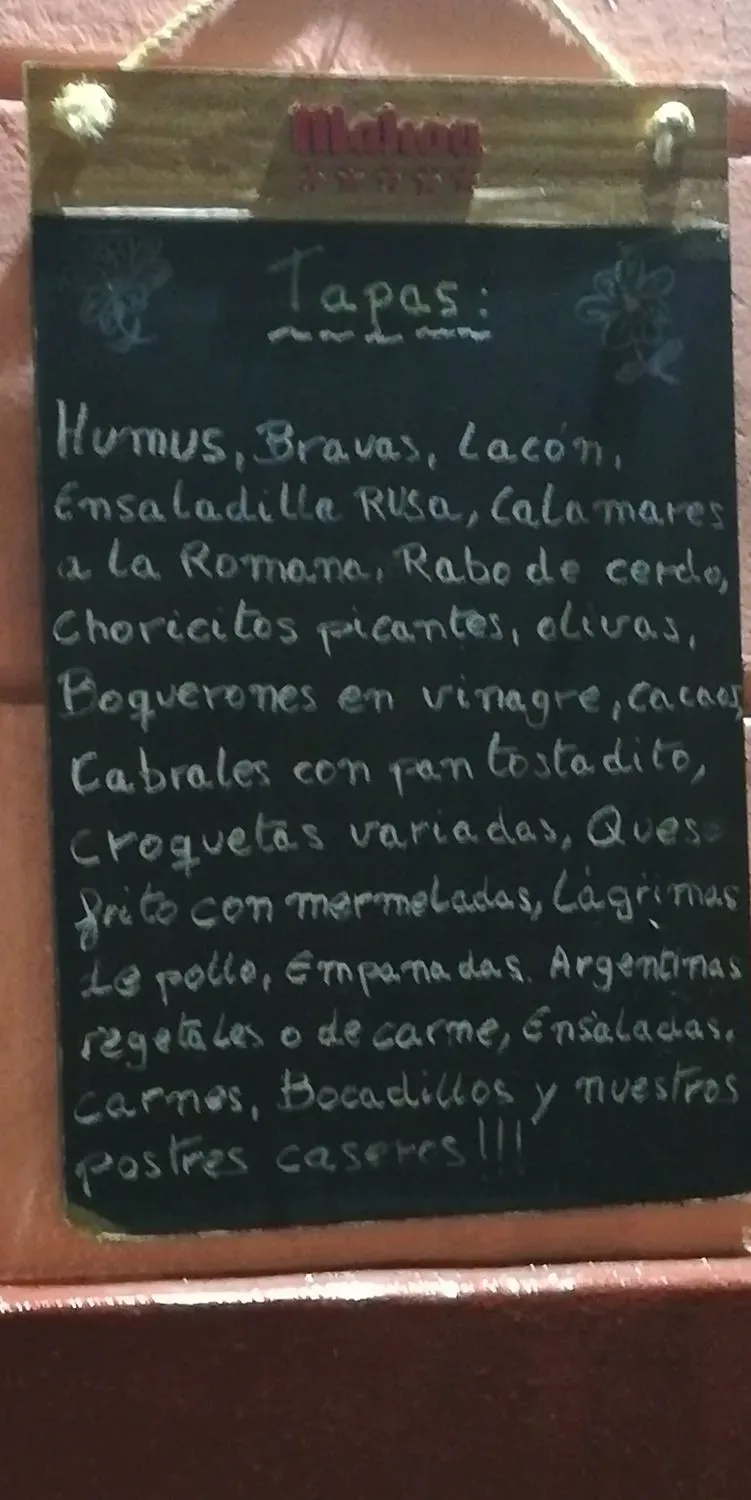 Mahou
Tapas:
Humus, Bravas, Lacón,
Ensaladilla Rusa, Calamares
a la Romana, Rabo de cerdo,
Choricitos picantes, olivas,
Boquerones en vinagre, cacaos
Cabrales con pan tostadito,
croquetas variadas, Queso
frito con mermeladas, Lágrimas
de pollo, Empanadas Argentinas
vegetales o de carne, Ensaladas,
carnes, Bocadillos y nuestros
postres caseros!!!